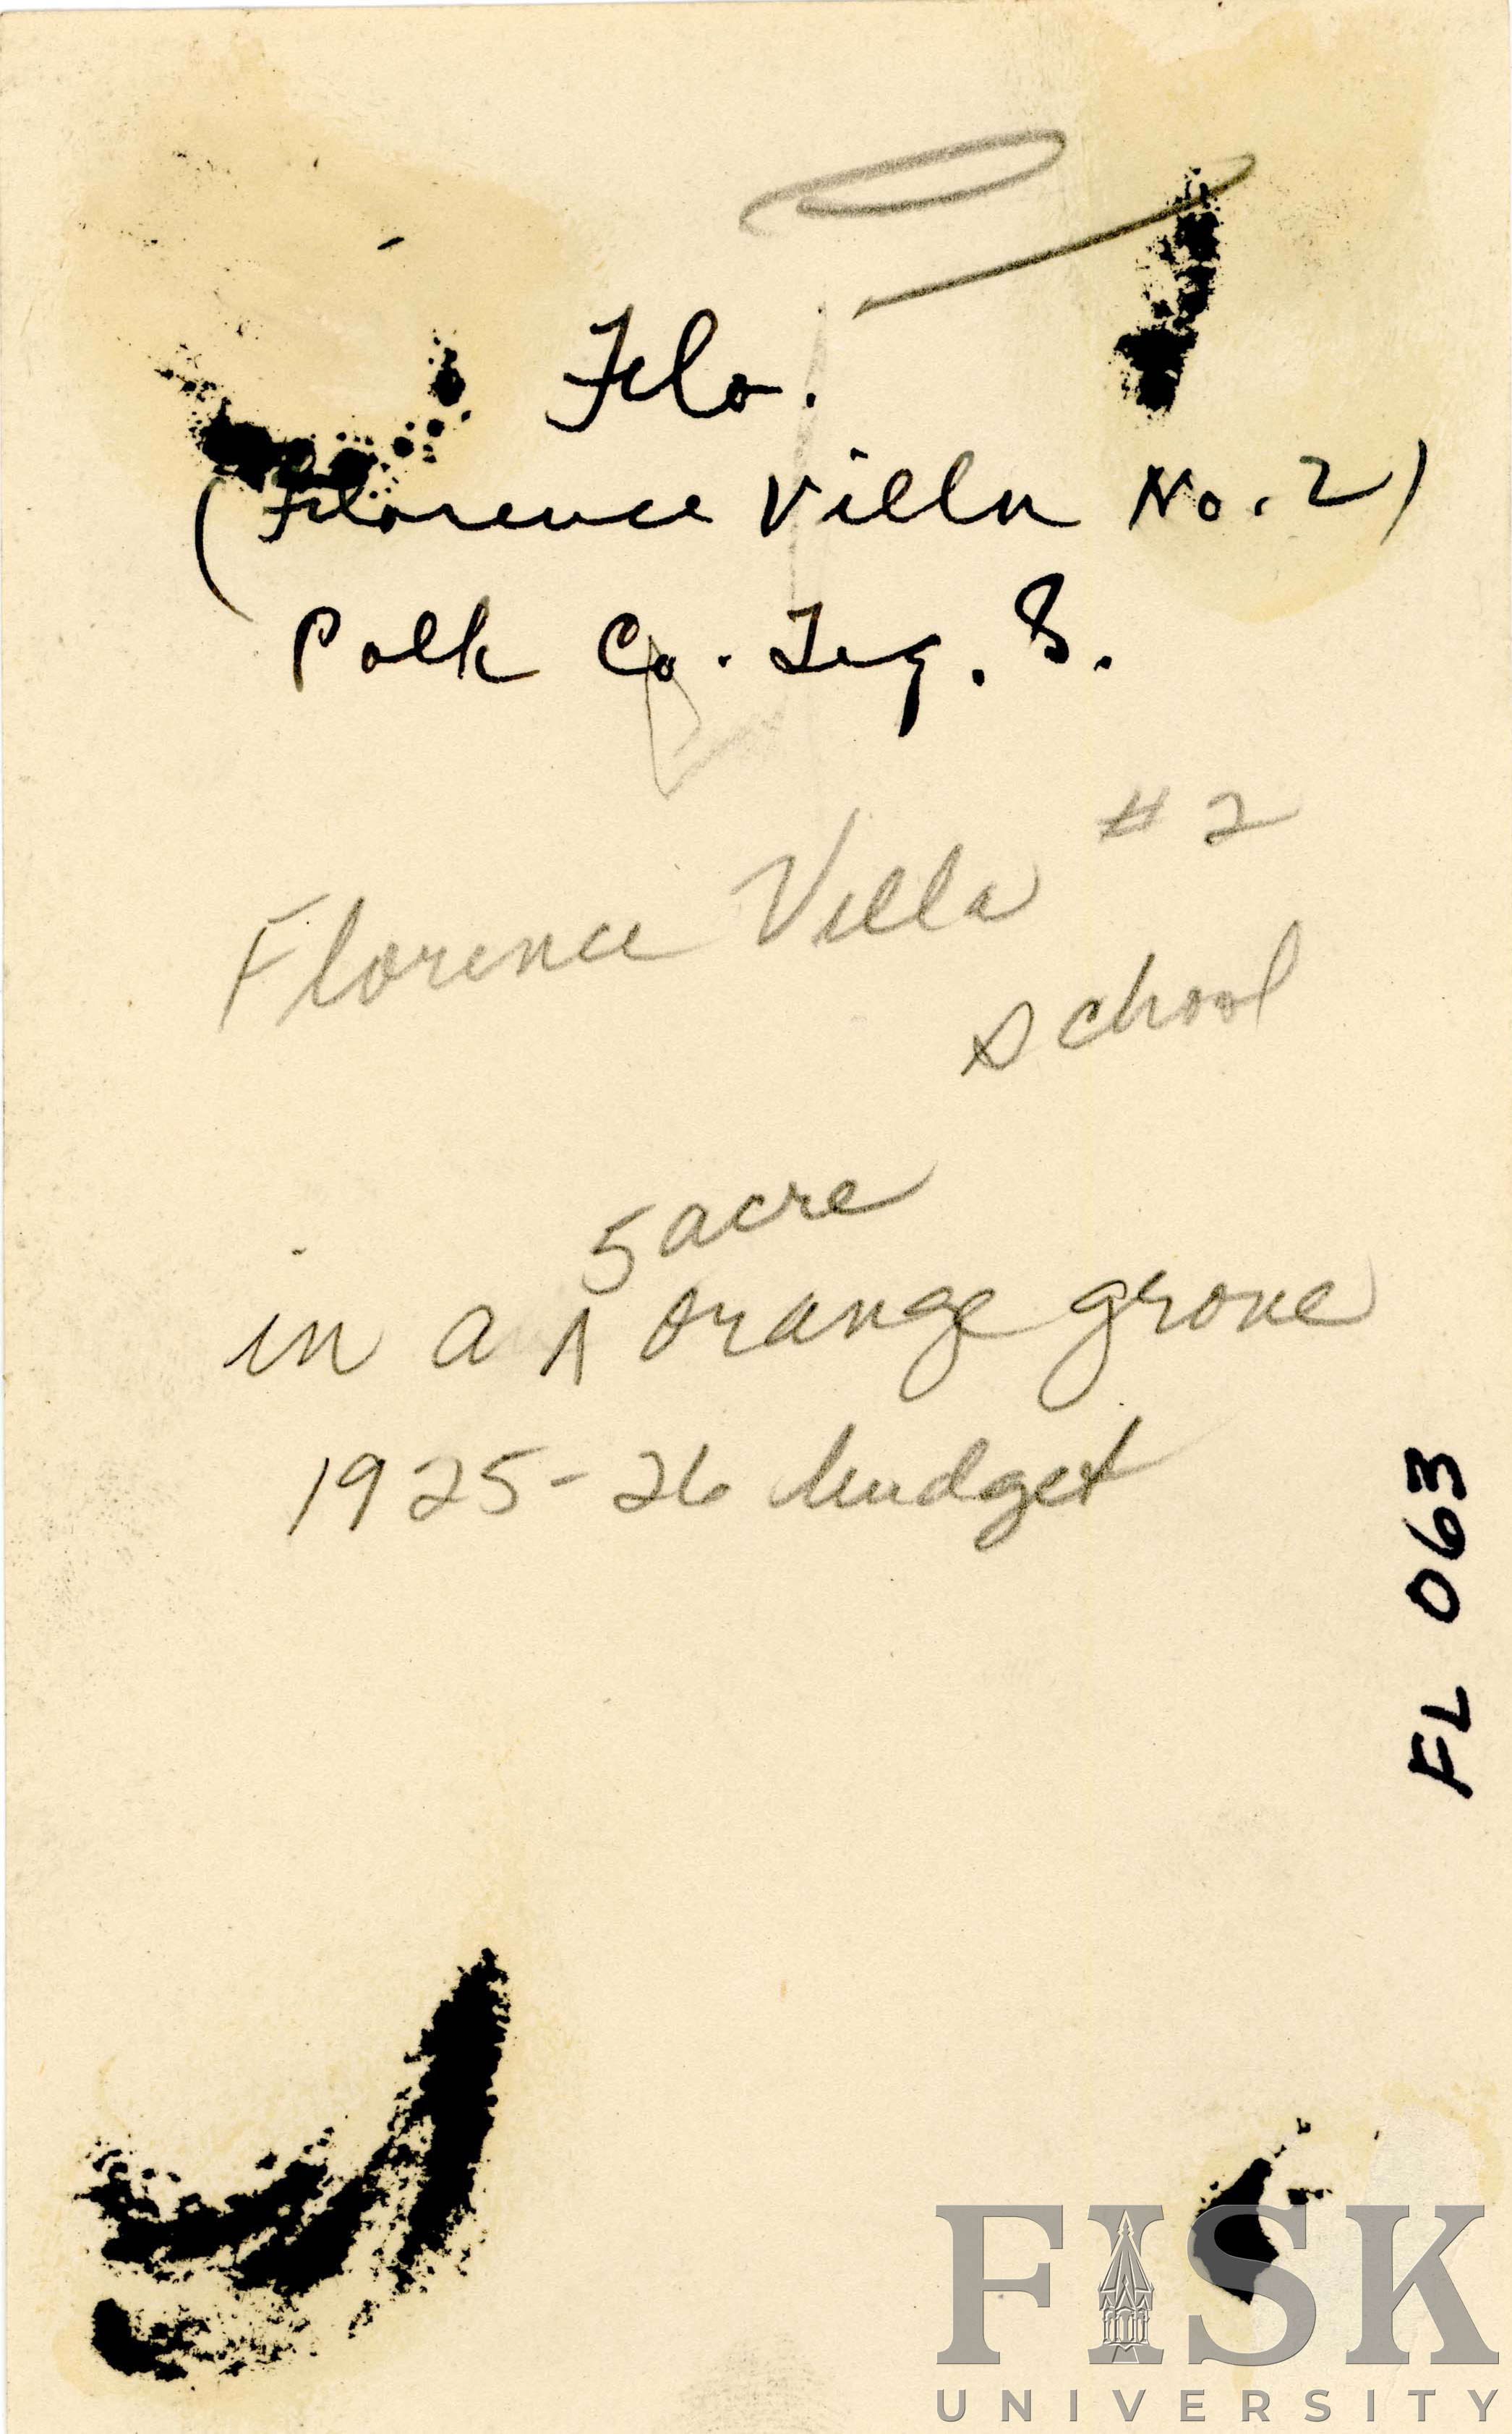 Flo.
(Florence Villa No. 2)
Polk Co. Trg. S.
Florence Villa #2
school
5 acre
in a ^ orange grove
1925-26 budget
FL 063
FISK
UNIVERSITY